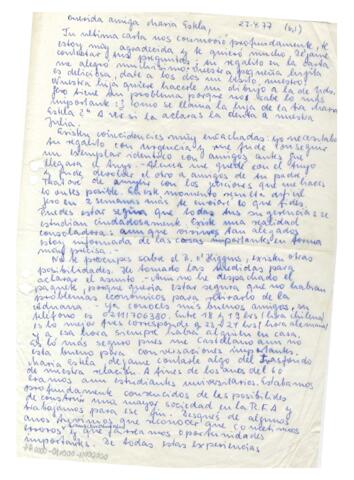 Querida amiga María Estela, 27.4.77 (b,)
Tu última carta nos conmovió profundamente, te
estoy muy agradecida y te quiero mucho. Déjame
contestar tus preguntas: su regalito en la carta
me alegró muchísimo: nuestra pequeña
es deliciosa, date a los dos un besito, nuestro
Nuestra hija quiere hacerle un dibujo a la de Uds.
pero tiene un problema porque nos falta lo más
importante: ¿como se llama la hija de la tía María
Estela?" A ver si la aclaras la duda a nuestra
Julia.
Existen coincidencias muy : yo necesitaba
su regalito con urgencia y me pude conseguir
un ejemplar idéntico con amigos antes que
llegara el tuyo. Ahora me quedé con el tuyo
y pude devolver el otro a amigos de su padre
Trataré de cumplir con los que me haces
lo antes posible. En este momento
pero en 2 semanas más te enviar lo que pides.
Puedes estar segura que todas tus sugerencias se
estudian cuidadosamente. Existe una realidad
consoladora: aunque vivimos tan alejados
estoy informada de las cosas importantes en forma
muy precisa.
No te preocupes sobre el B. O'Higgins, existen otras
posibilidades. He tomado las medidas para
aclarar el asunto. Aún no he despachado el
paquete, porque quería estar segura que no habían
problemas económicos para retirarlo de la
aduana. Ya conoces mis buenos amigos, su
teléfono es 02411706380. Entre 18 y 19 hrs (hora chilena)
es lo mejor pues corresponde a 23 a 24 hrs (hora alemana)
y a esa hora siempre habrá alguien en casa,
es lo más seguro pues mi castellano aún no
esta bueno para conversaciones importantes.
María Estela déjame contarte algo del trasfondo
de nuestra relación. A fines de los años del 60
éramos aún estudiantes universitarios. Estábamos
profundamente convencidos de las posibilidades
de construir una mayor sociedad en la R.F.A y
trabajamos para ese fin. Después de algunos
años tuvimos que reconocer que cometimos
errores y que fueron oportunidades
importantes. De todas estas experiencias